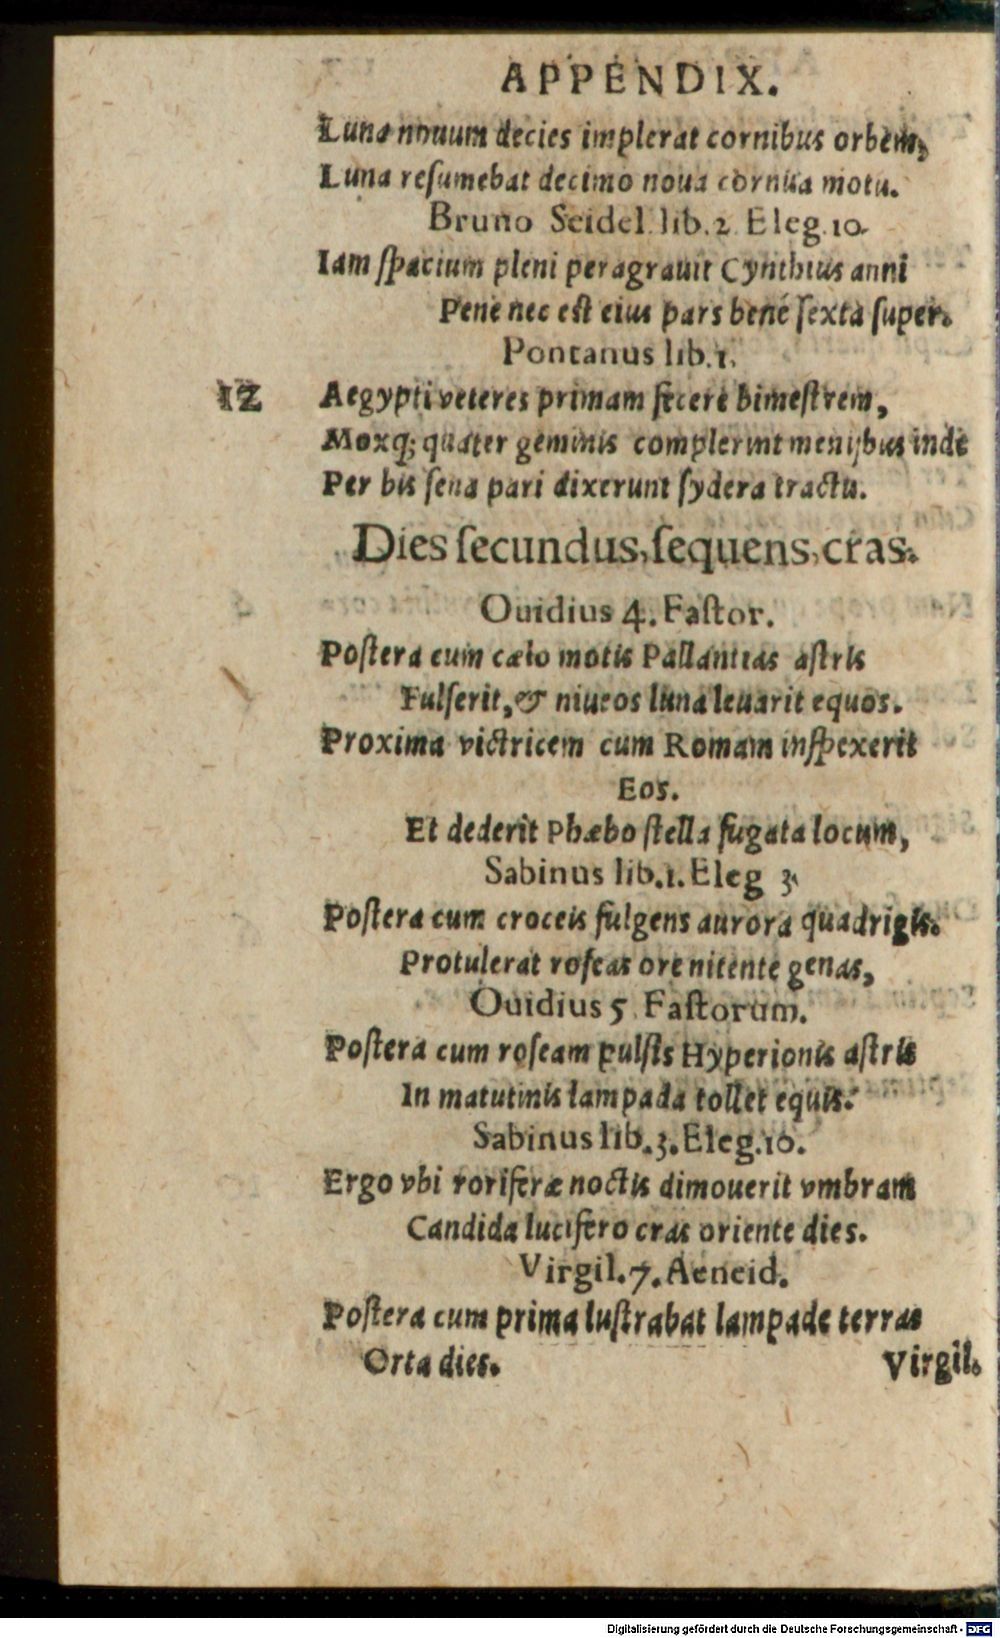 APPENDIX.
Luna nouum decies implerat cornibus orbem,
Luna reſumebat decimo noua cornua motu.
Bruno Seidel lib. 2 Eleg. 10.
Iam ſpacium pleni peragrauit Cynthius anni
Pene nec est eius pars bené ſexta ſuper.
Pontanus lib. 1.
12 Aegypti veteres primam fecere bimeſtrem,
Moxq; quater geminis complerint menſibus inde
Per bis ſena pari dixerunt ſydera tractu.
Dies ſecundus, ſequens, cras.
Ouidius 4. Faſtor.
Poſtera cum cælo motis Pallantias aſtris
Fulſerit, & niueos luna leuarit equos.
Proxima victricem cum Romam inſpexerit
Eos.
Et dederit Phæbo ſtella fugata locum,
Sabinus lib. 1. Eleg 3.
Poſtera cum croceis fulgens aurora quadrigis.
Protulerat roſeas ore nitente genas,
Ouidius 5 Faſtorum.
Poſtera cum roſeam pulſis Hyperionis aſtris
In matutinis lampada tollet equis.
Sabinus lib. 3. Eleg. 10.
Ergo vbi roriferæ noctis dimouerit vmbram
Candida lucifero cras oriente dies.
Virgil. 7. Aeneid.
Poſtera cum prima luſtrabat lampade terras
Orta dies.
Virgil.
Digitalisierung gefördert durch die Deutsche Forschungsgemeinschaft - DFG